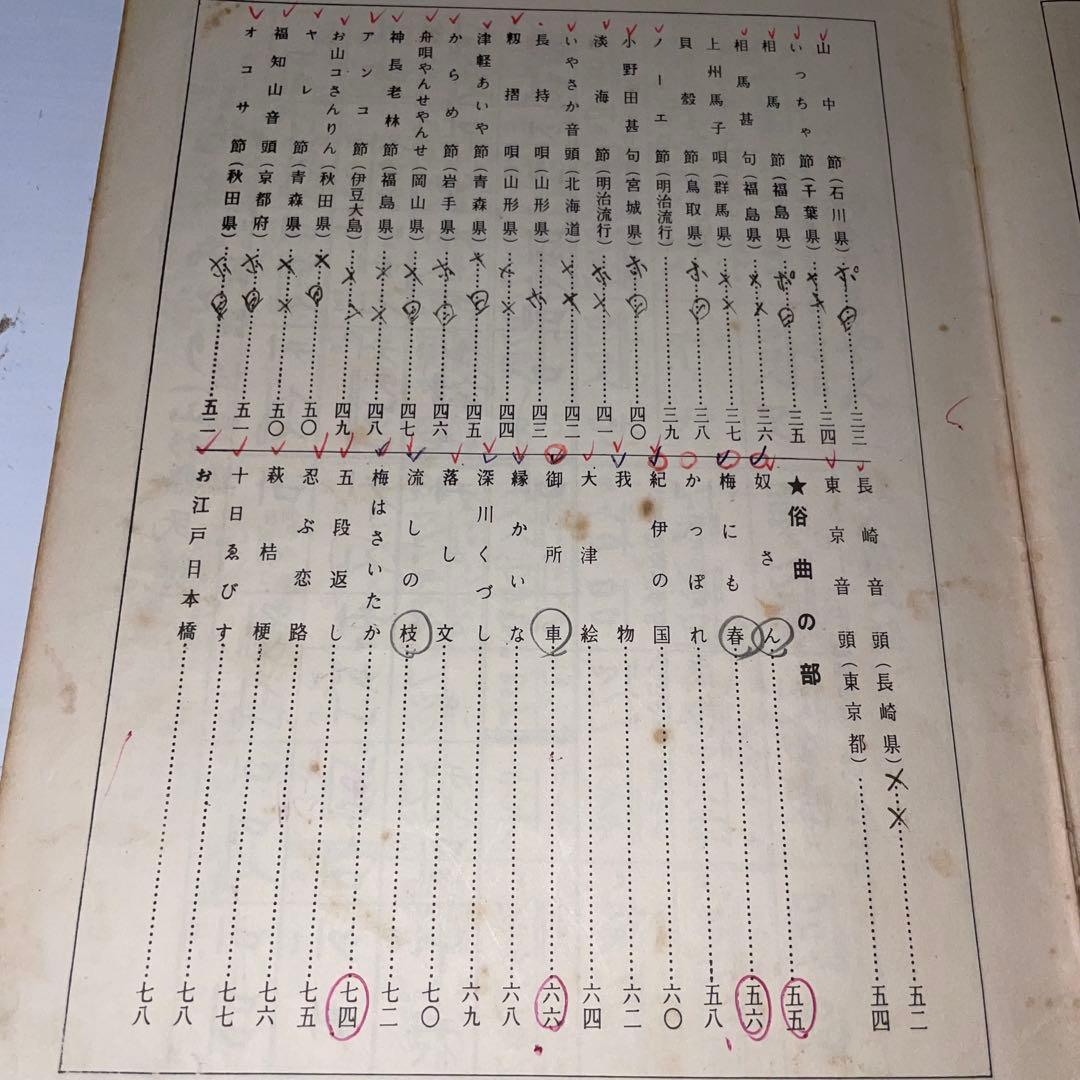 山中節(石川県)…三三
いっちゃ節(千葉県)…三四
相馬節(福島県)…三五
相馬甚句(福島県)…三六
上州馬子唄(群馬県)…三七
貝殻節(鳥取県)…三八
ノーエ節(明治流行)…三九
小野田甚句(宮城県)…四〇
淡海節(明治流行)…四一
いやさか音頭(北海道)…四二
長持唄(山形県)…四三
籾摺唄(山形県)…四四
津軽あいや節(青森県)…四五
からめ節(岩手県)…四六
舟唄やんせやんせ(岡山県)…四七
神長老林節(福島県)…四八
アンコ節(伊豆大島)…四九
お山コさんりん(秋田県)…五〇
ヤレ節(青森県)…五〇
福知山音頭(京都府)…五一
オコサ節(秋田県)…五二
長崎音頭(長崎県)…五二
東京音頭(東京都)…五四
★俗曲の部
奴さん…五五
梅にも春…五六
かっぽれ…五八
紀伊の国…六〇
我物…六二
大津絵…六四
御所車…六六
縁かいな…六八
深川くづし…六九
落し文…七〇
流しの枝…七二
梅はさいたか…七四
五段返し…七五
忍ぶ恋路…七六
萩桔梗…七七
十日ゑびす…七八
お江戸日本橋…七八